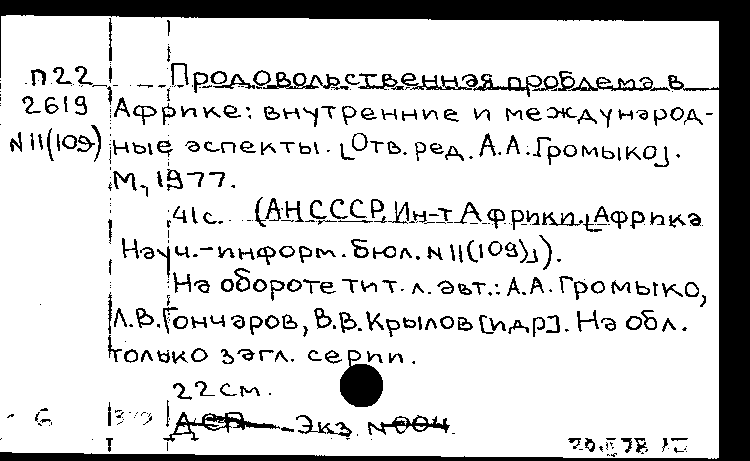 П22 Продовольственная проблема в
2619 Африке: внутренние и международ-
N11(109) ные аспекты. [Отв. ред. А.А. Громыко].
М., 1977.
41 с. (АН СССР. Ин-т Африки. [Африка
Науч.-информ. бюл. N11(109)]).
На обороте тит. л. авт.: А.А. Громыко,
Л.В. Гончаров, В.В. Крылов [и др]. На обл.
только загл. серии.
22 см.
6 Экз. N004